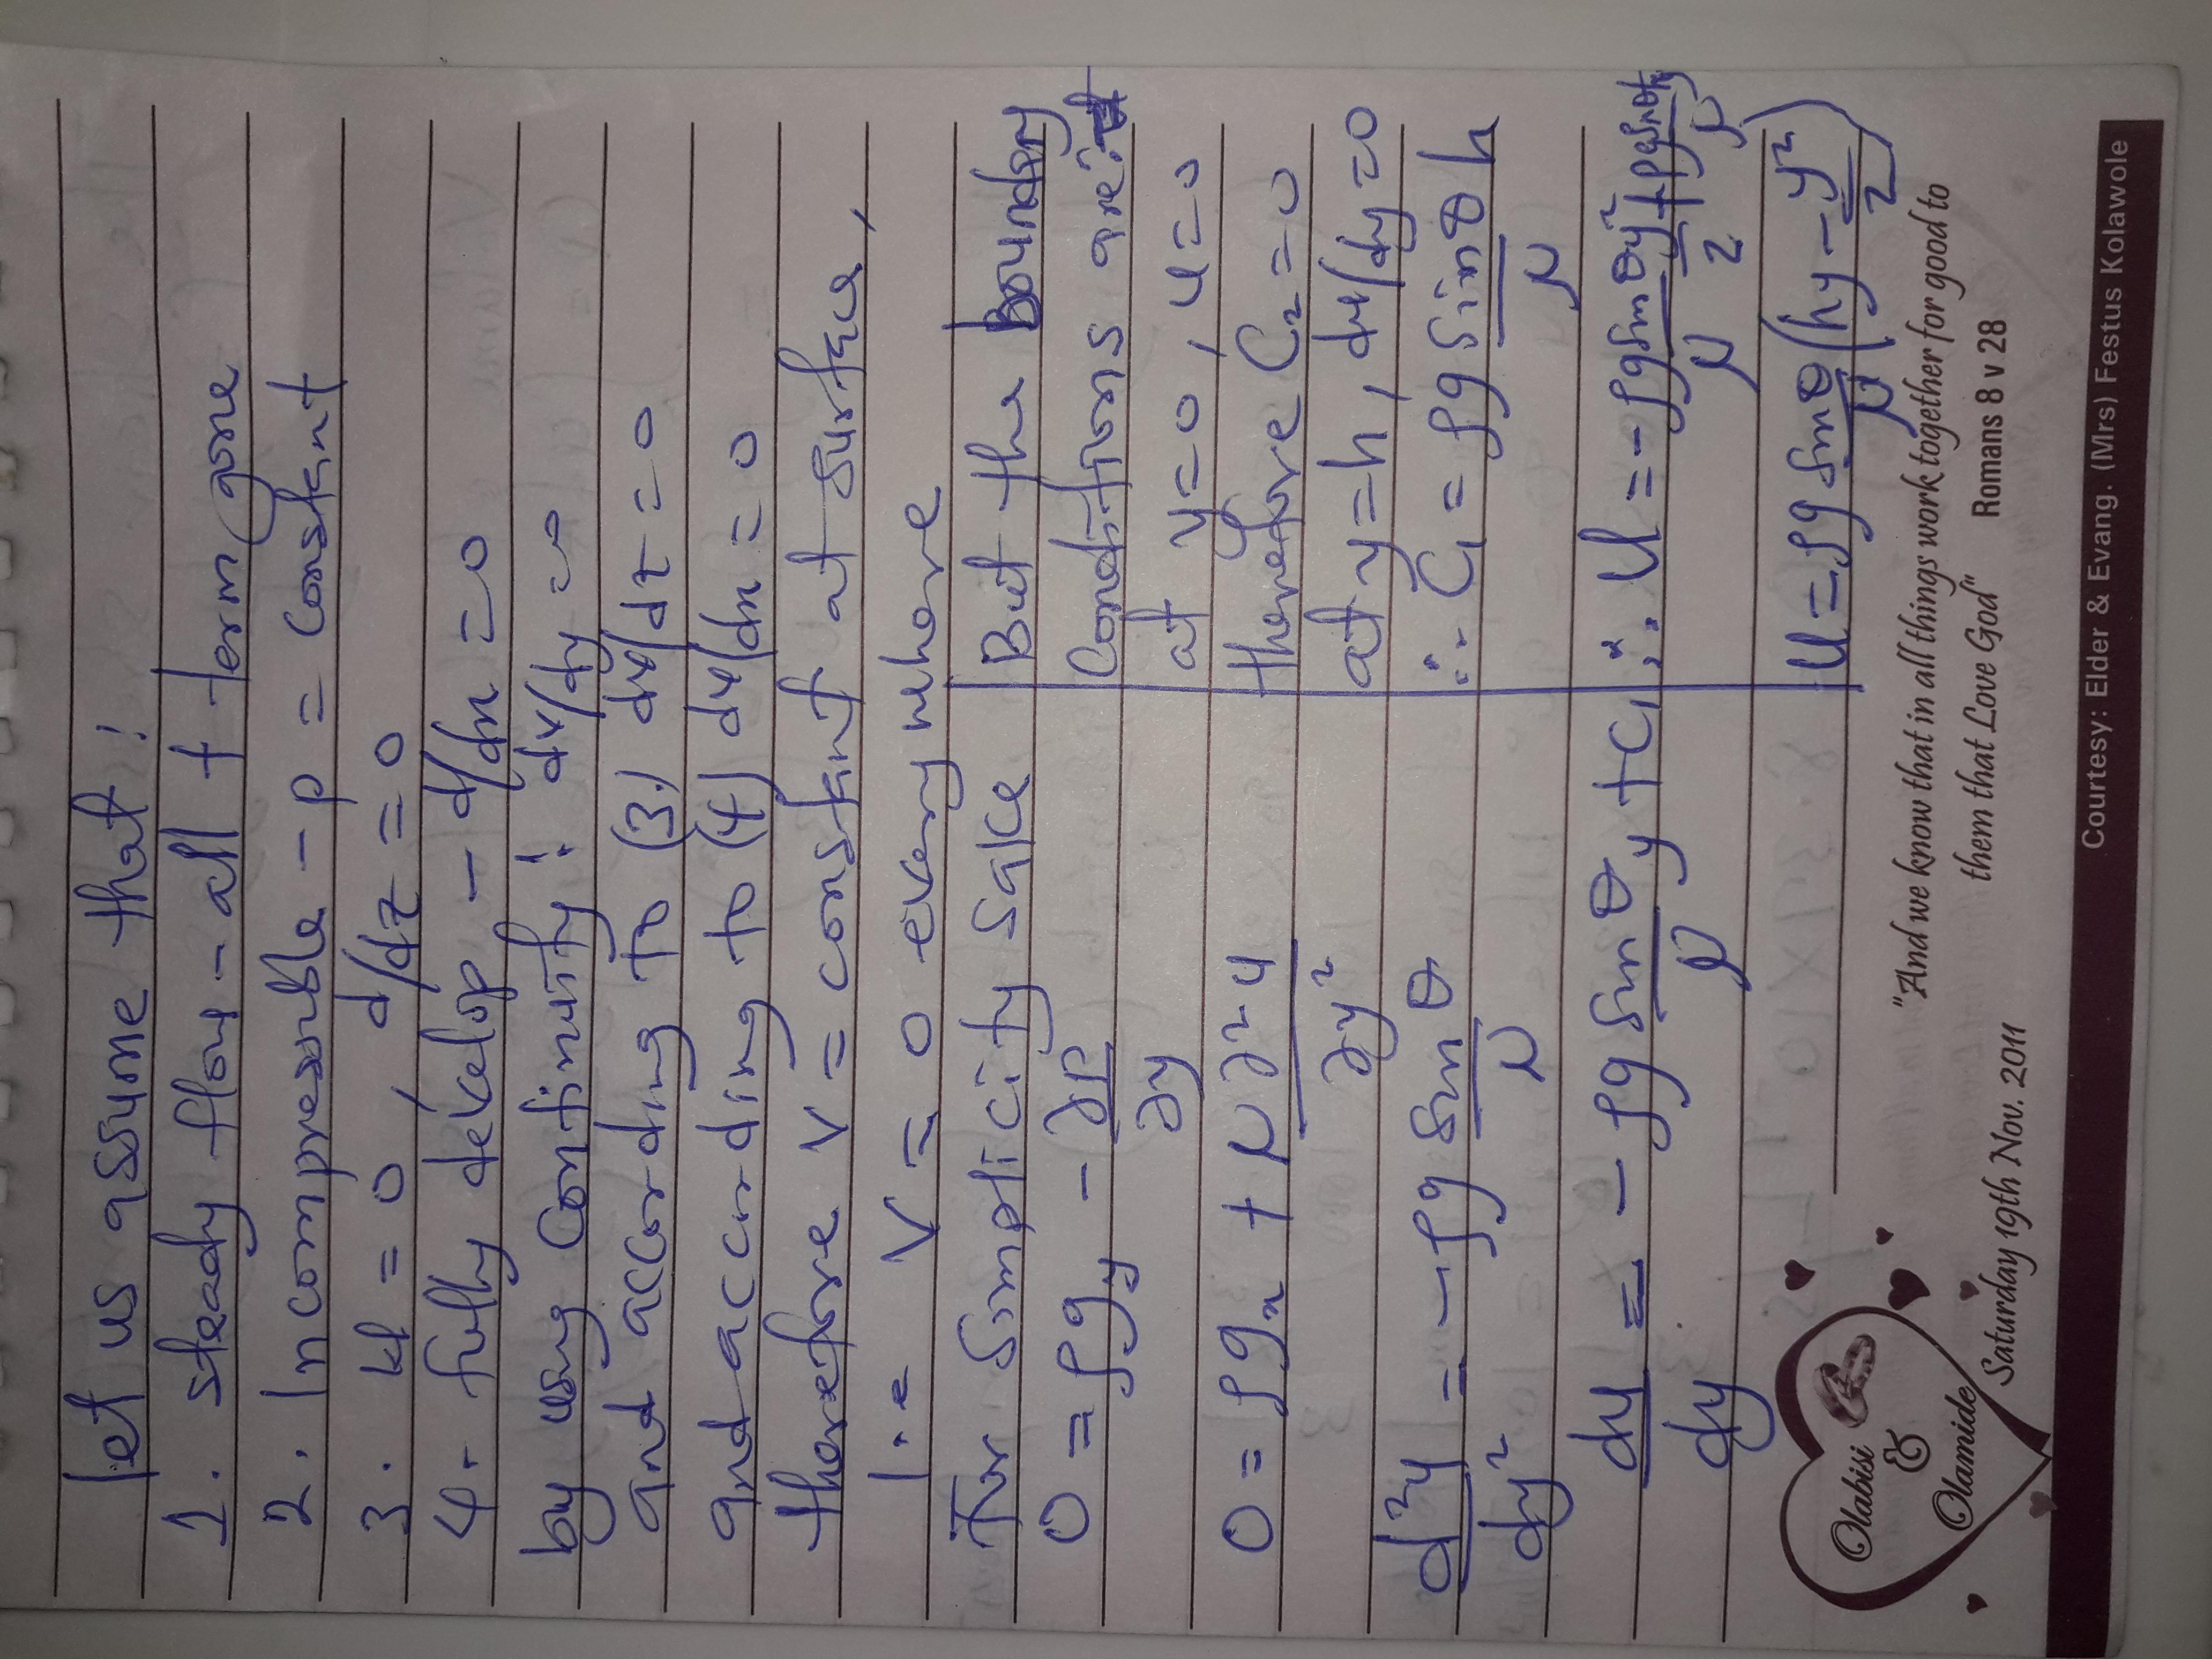 let us assume that:
1. steady flow - all t term gone
2. Incompressible - ρ = constant
3. W = 0, d/dz = 0
4. fully develop - d/dx = 0
by using continuity: dv/dy = 0
and according to (3) dw/dz = 0
and according to (4) du/dx = 0
therefore v = constant at surface,
i.e V = 0 every where
For simplicity sake
0 = ρg_y - ∂P/∂y
0 = ρg_x + μ ∂²u/∂y²
d²u/dy² = -ρg sinθ/μ
du/dy = -ρg sinθ/μ y + C₁
But the boundary
Conditions are:
at y=0, u=0
therefore C₂=0
at y=h, du/dy=0
∴ C₁ = ρg sinθ h/μ
∴ U = -ρg sinθ/μ y²/2 + ρg sinθ hy/μ
U = ρg sinθ/μ (hy - y²/2)
Olabisi
&
Olamide
Saturday 19th Nov. 2011
"And we know that in all things work together for good to
them that Love God" Romans 8 v 28
Courtesy: Elder & Evang. (Mrs) Festus Kolawole